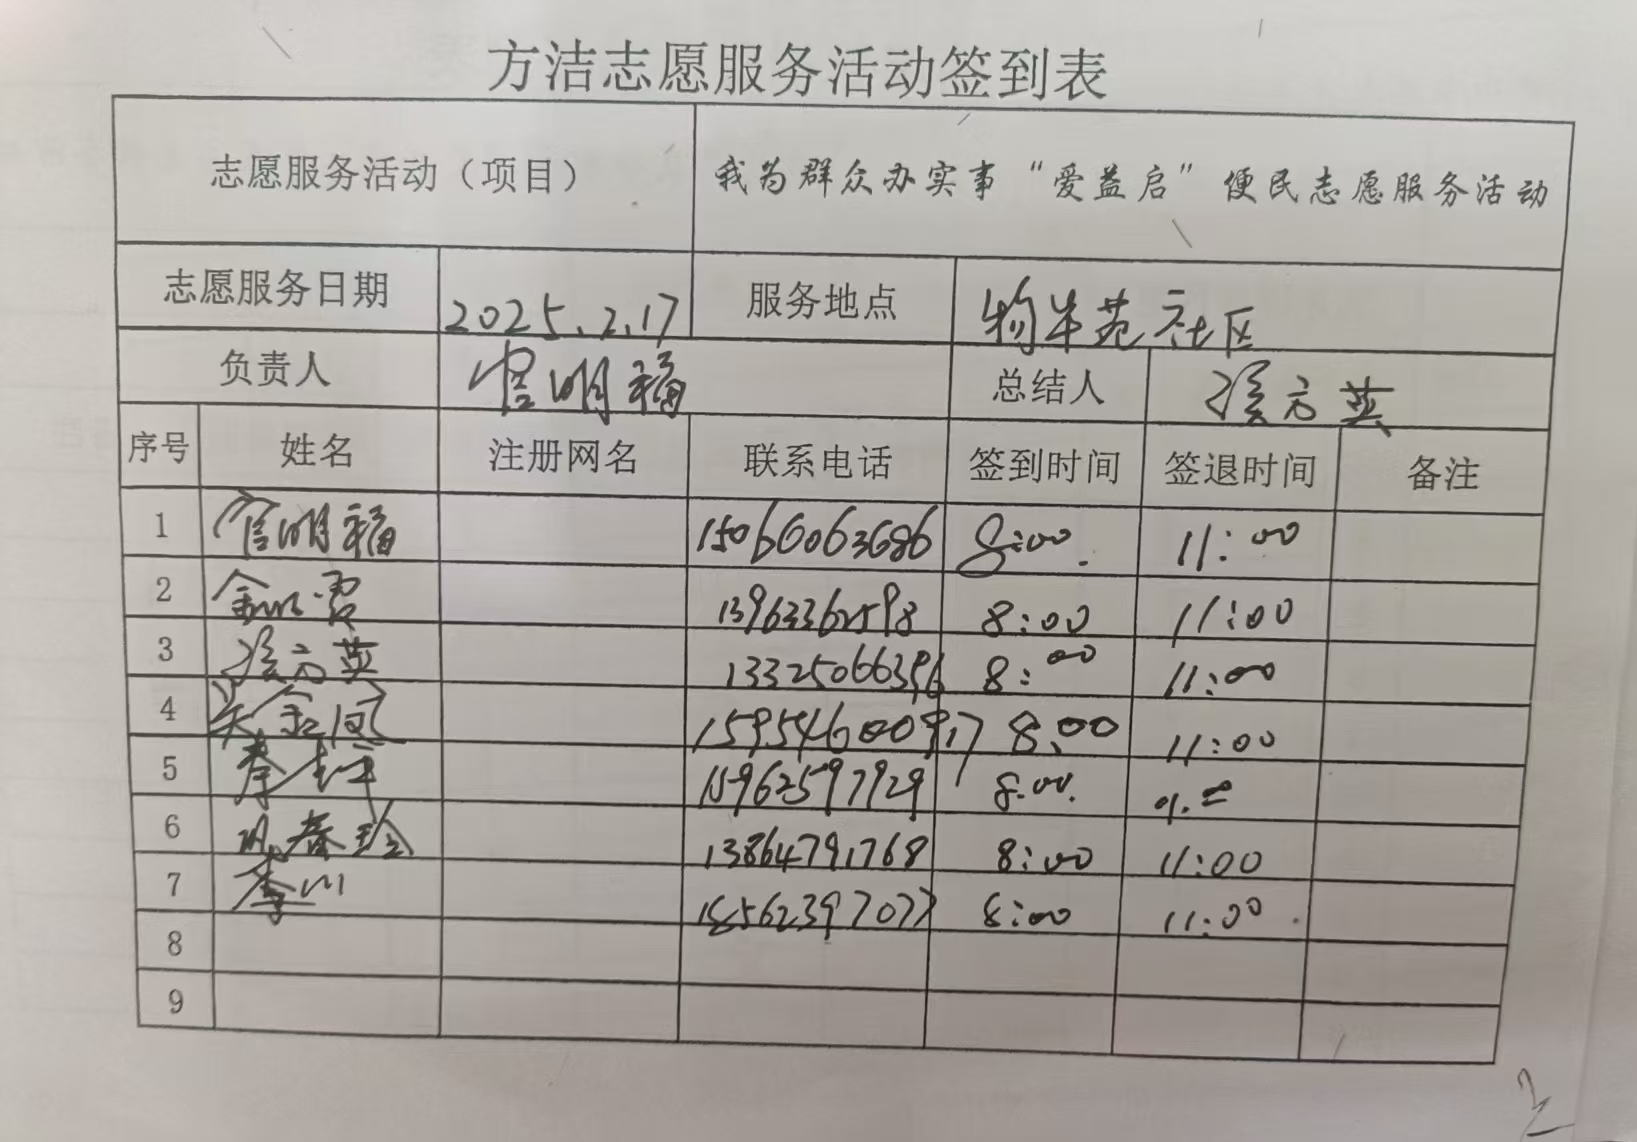 方洁志愿服务活动签到表
志愿服务活动（项目） 我为群众办实事“爱益启”便民志愿服务活动
志愿服务日期 2025.2.17 服务地点 苑社区
负责人 官明福 总结人 方英
序号 姓名 注册网名 联系电话 签到时间 签退时间 备注
1 官明福 15066063686 8:00 11:00
2 13963362598 8:00 11:00
3 方英 13325066396 8:00 11:00
4 吴金凤 15954600917 8:00 11:00
5 秦 15962597929 8:00
6 春玲 13864791768 8:00 11:00
7 李川 18562397077 8:00 11:00
8
9
2